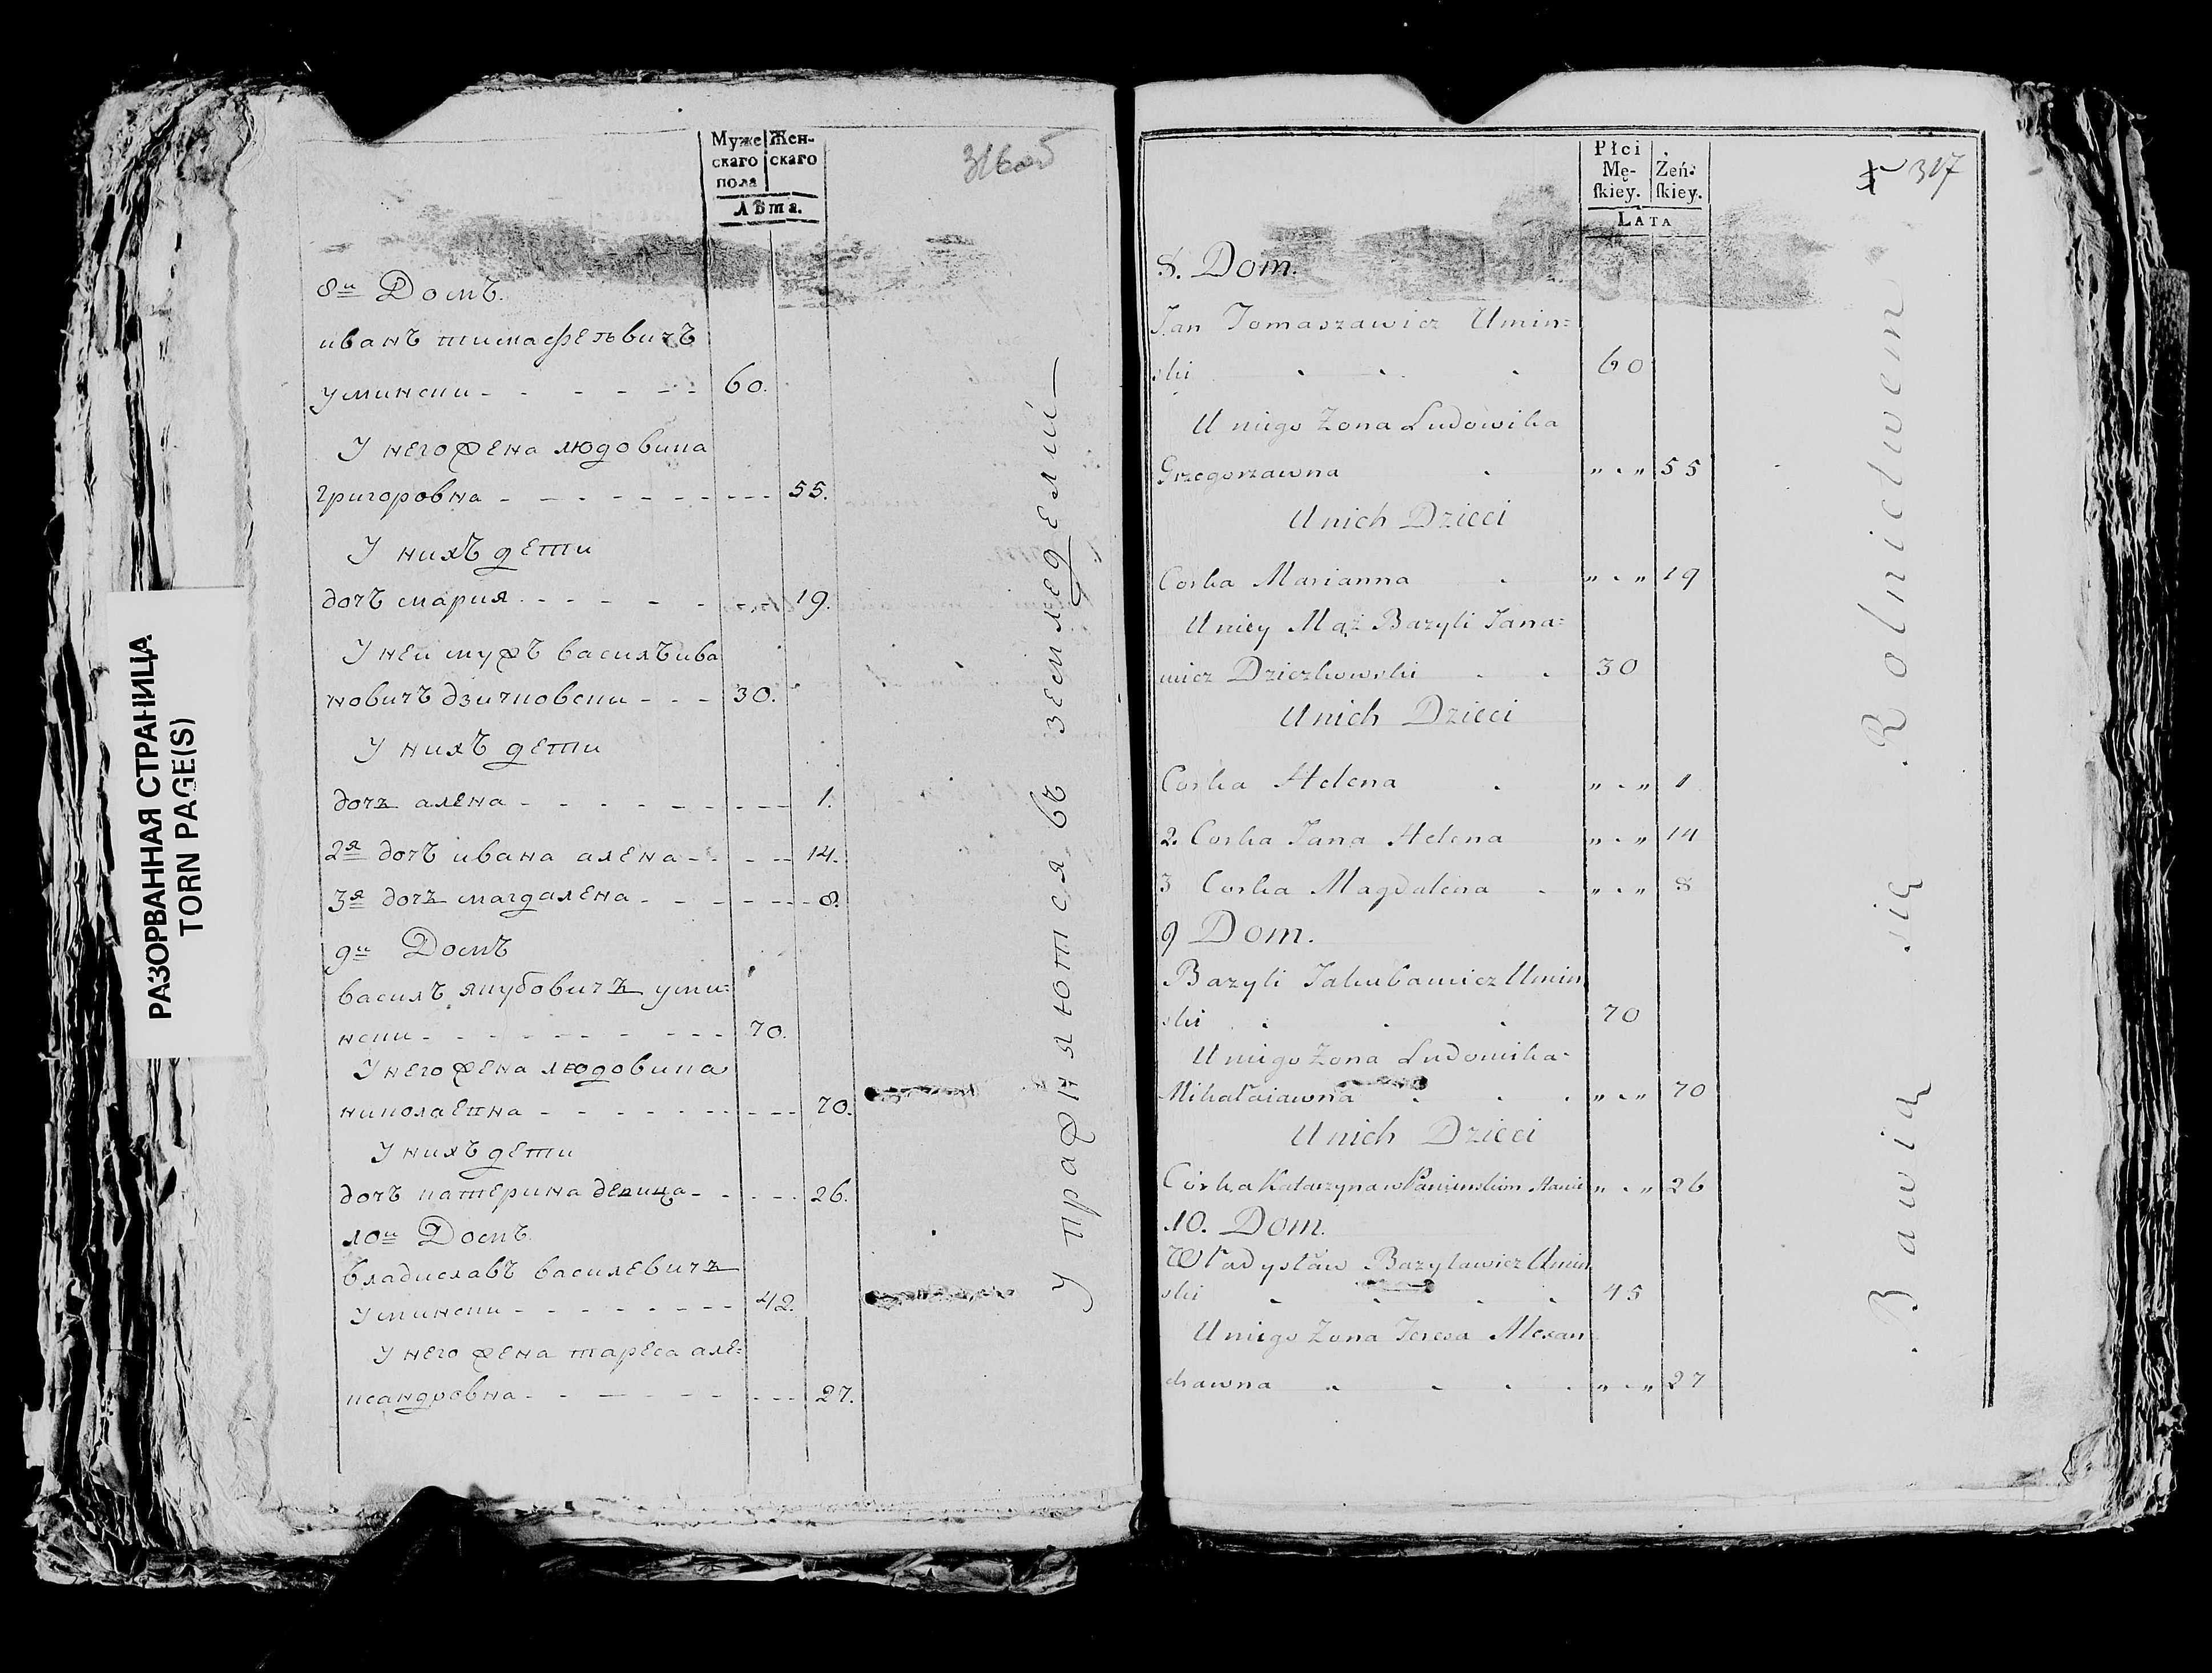 РАЗОРВАННАЯ СТРАНИЦА
TORN PAGE(S)
Муже Жен-
скаго скаго
пола
Лѣта.
316об
8й Домъ.
иванъ тимафеьвичъ
умински - - - - - - 60.
У него жена людовика
григоровна - - - - - - - - 55.
У нихъ дети
дочъ мария - - - - - - - 19.
У неи мужъ василъ ива
новичъ дзичковски - - - 30.
У нихъ дети
дочъ алена - - - - - - - - 1.
2я дочъ ивана алена - - - - 14.
3я дочъ магдалена - - - - - - 8.
9й Домъ
василъ якубовичъ уми=
нски - - - - - - - - - 70.
У него жена людовика
николаевна - - - - - - - - 70.
У нихъ дети
дочъ катерина девица - - - - 26.
10й Домъ.
владиславъ василевичъ
умински - - - - - - - - 42.
У него жена тареса але=
ксандровна - - - - - - - - 27.
Упражняются въ земледелии
Płci
Mę- Żeń-
ſkiey. ſkiey.
LATA
317
8. Dom.
Jan Tomaszawicz Umin=
ski 60
U niego Zona Ludowika
Grzegorzawna " - " 55
U nich Dzieci
Corka Marianna " - " 19
U niey Mąż Bazyli Jana=
wicz Dziczkowski 30
U nich Dzieci
Corka Helena " - " 1
2. Corka Jana Helena " - " 14
3 Corka Magdalena " - " 8
9 Dom.
Bazyli Jakubawicz Umin
ski 70
U niego Zona Ludowika=
Mikałaiawna " - " 70
U nich Dzieci
Córka Katarzyna w Panienskim Stanie " - " 26
10. Dom.
Władysław Bazylawicz Umin
ski 45
U niego Zona Teresa Alexan=
drawna " - " 27
Bawią się Rolnictwem